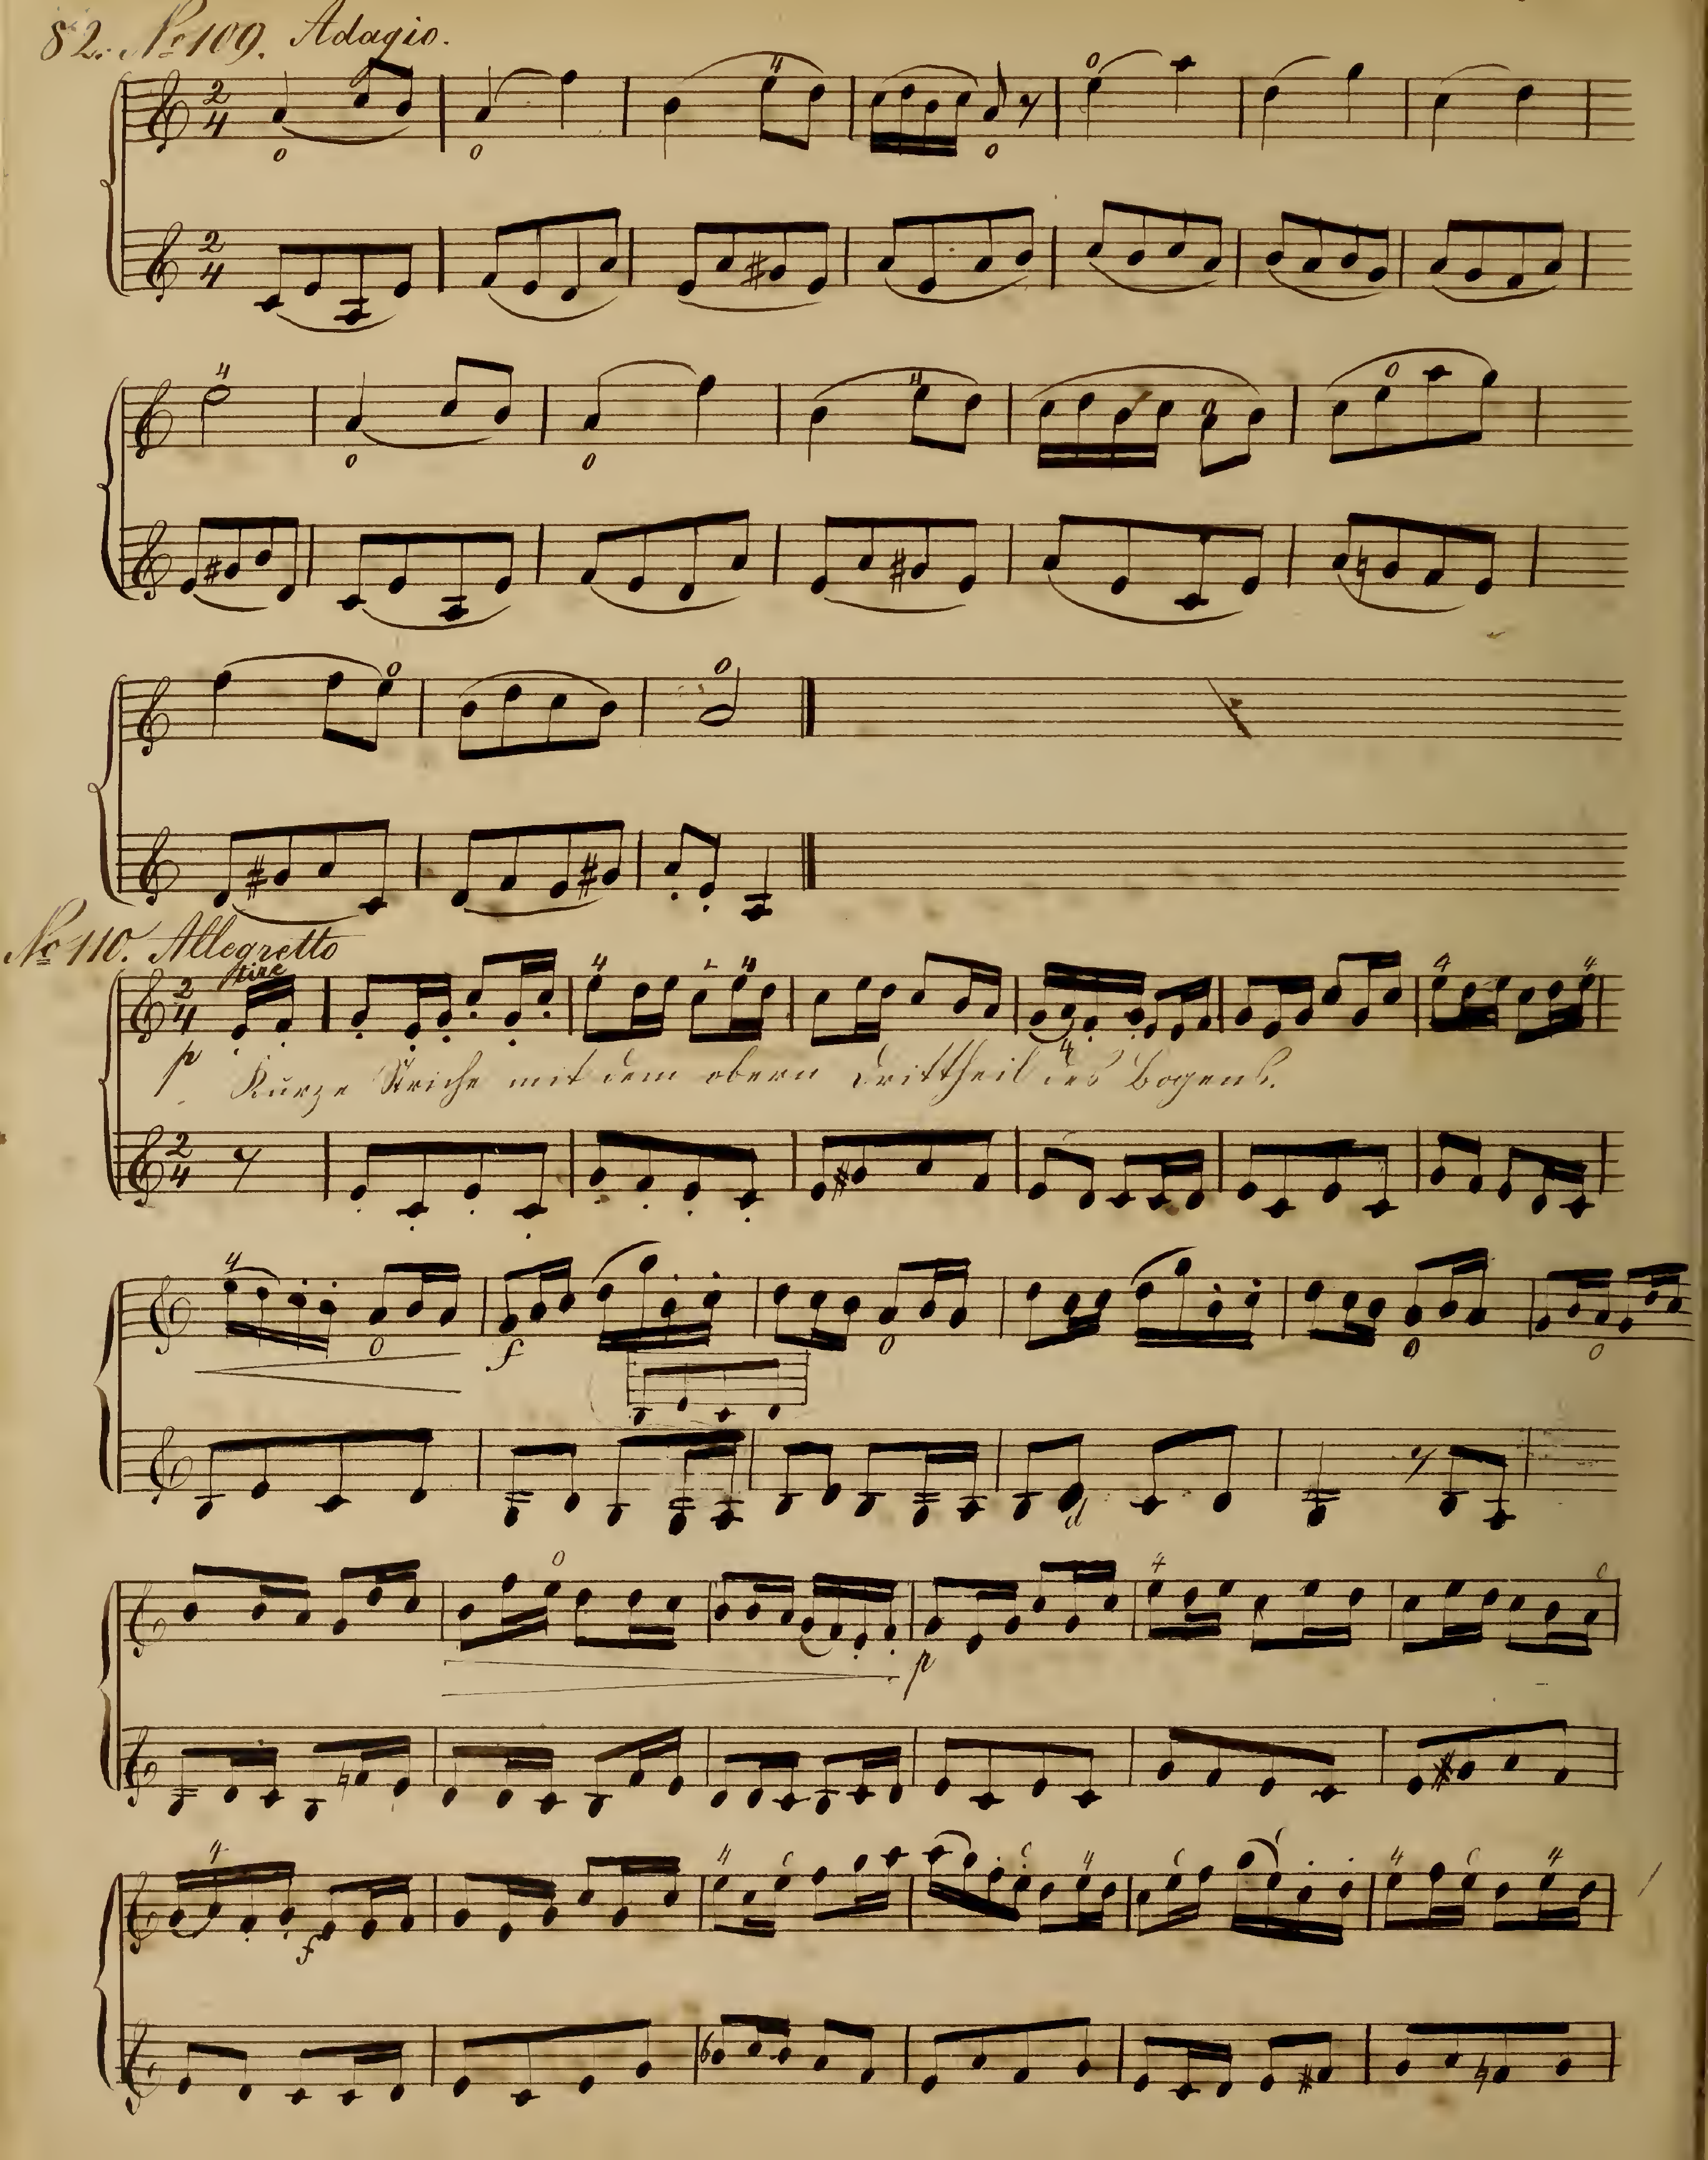 82. No 109. Adagio.
No 110. Allegretto
tiré
p
Kurze Striche mit dem obern Drittheil des Bogens.
f
d
p
f